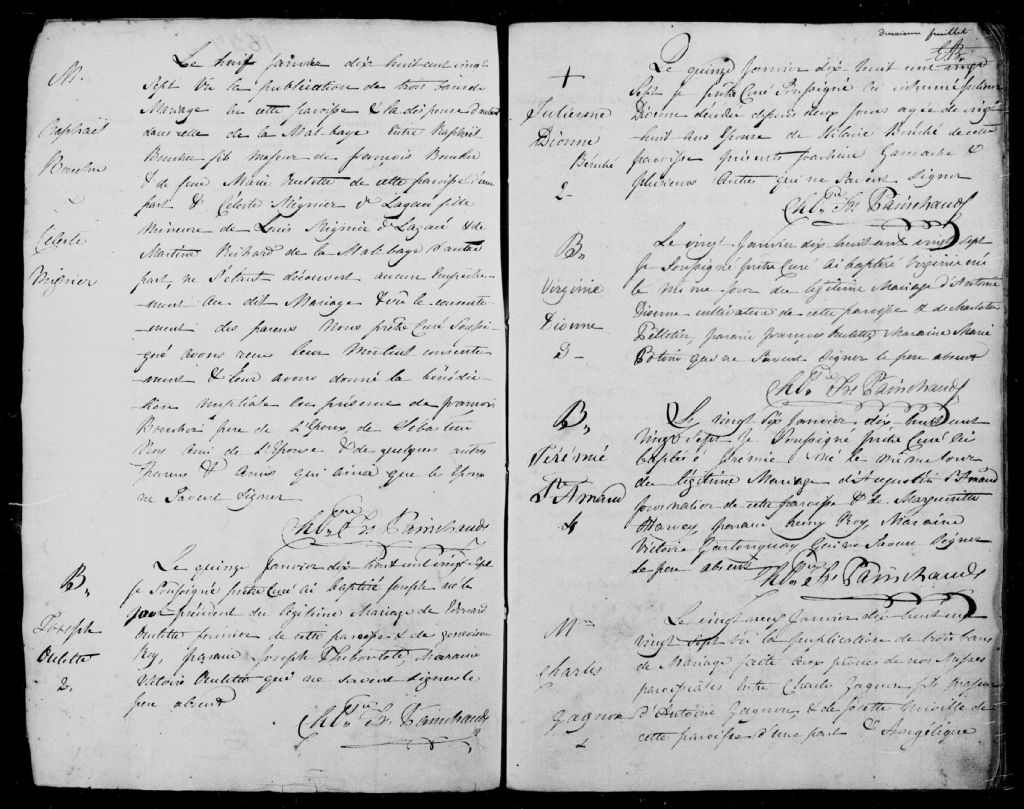 M.
Raphaël
Boucher
Céleste
Mignier
Le huit janvier dix huit cent vingt
Sept Vû la publication de trois bans de
Mariage en cette paroisse & la dispense
dans celle de la Mal-baye Entre Raphaël
Boucher fils majeur de françois Boucher
& de feue Marie Oulette de cette paroisse d'une
part & Céleste Mignier d Lagacé fille
Mineure de Louis Mignier d Lagacé & de
Martine Richard de la Mal-baye d'autre
part, ne S'étant découvert aucun Empêche-
ment au dit Mariage & vû le consente-
ment des parens Nous prêtre Curé Soussi-
gné avons reçu leur Mutuel consente-
ment & leur avons donné la bénédic-
tion nuptiale En présence de françois
Boucher frère de L'Epoux, de Sebastien
Roy Ami de L'Epouse & de quelques autres
parens & Amis qui ainsi que le Epoux
ne Savent Signer
Chs. Frs Painchaud
B,,
Joseph
Oulette
2.
Le quinze Janvier dix huit cent vingt Sept
je Soussigné prêtre Curé ai baptisé Joseph né le
jour précédent du légitime Mariage de Edouard
Oulette fermier de cette paroisse & de Geneviève
Roy, parain Joseph Thiboutote, Maraine
Victoire Oulette qui ne Savent Signer le
père absent
Chs. Frs Painchaud
deuxieme feuillet
+
Julienne
Dionne
Bériché
2-
Le quinze Janvier dix huit cent vingt
Sept je prêtre Curé Soussigné ai inhumé Julienne
Dionne décédée depuis deux jours agée de vingt
huit ans Epouse de Hilaire Bériché de cette
paroisse présents Joachim Gamache &
plusieurs Autres qui ne Savent Signer
Chs. Frs Painchaud
B,,
Virginie
Dionne
3-
Le vingt Janvier dix huit cent vingt Sept
je Soussigné prêtre Curé ai baptisé Virginie née
le même jour du légitime Mariage d'Antoine
Dionne cultivateur de cette paroisse & de Charlotte
Pelletier, parain françois Oulette, Maraine Marie
Potvin qui ne Savent Signer le père absent
Chs. Frs Painchaud
B,,
Jérémie
St Amand
4
Le vingt Six Janvier, dix huit cent
Vingt Sept je Soussigné prêtre Curé ai
baptisé Jérémie né le même jour
du légitime Mariage d'Augustin St Amand
journalier de cette paroisse & de Marguerite
Harvey, parain henry Roy, Maraine
Victoire Gastonguay Qui ne Savent Signer
le père absent
Chs. Frs Painchaud
M
Charles
Gagnon
Le vingt neuf janvier dix huit cent
vingt Sept Vû la publication de trois bans
de Mariage faite aux prônes de nos Messes
paroissiales Entre Charles Gagnon fils Majeur
d'Antoine Gagnon, & de Josette Miville de
cette paroisse d'une part & Angélique